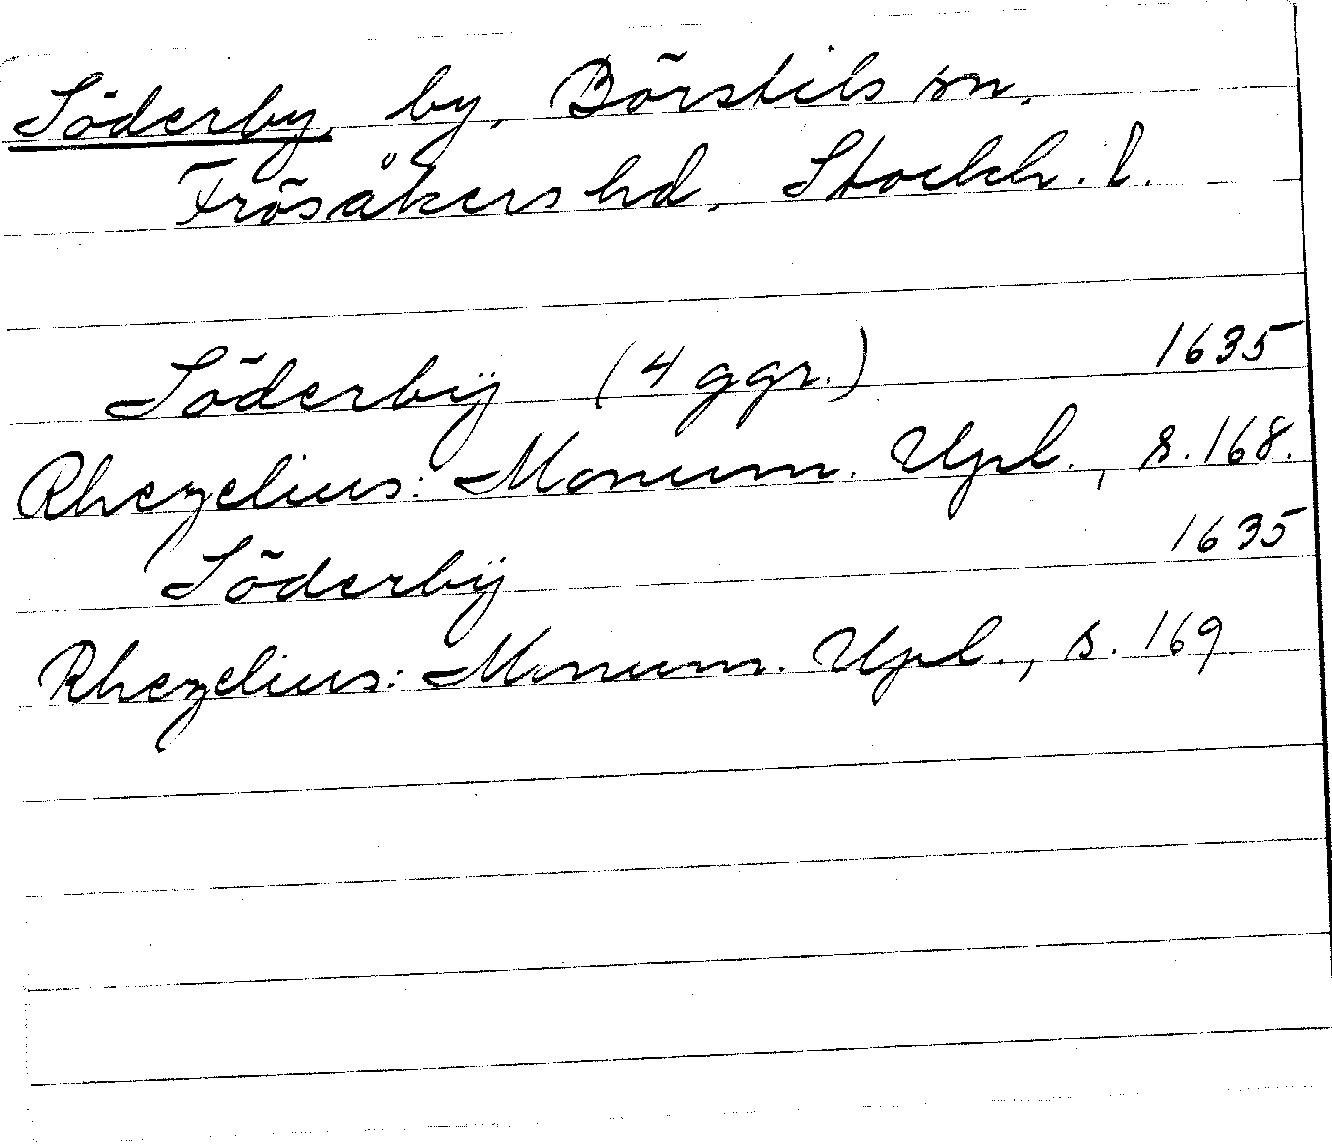 Söderby, by, Börstils sn,
Frösåkers hd, Stockh. l.
Söderbÿ (4 ggr.) 1635
Rhezelius: Monum. Upl., s. 168.
Söderbÿ 1635
Rhezelius: Monum. Upl., s. 169.